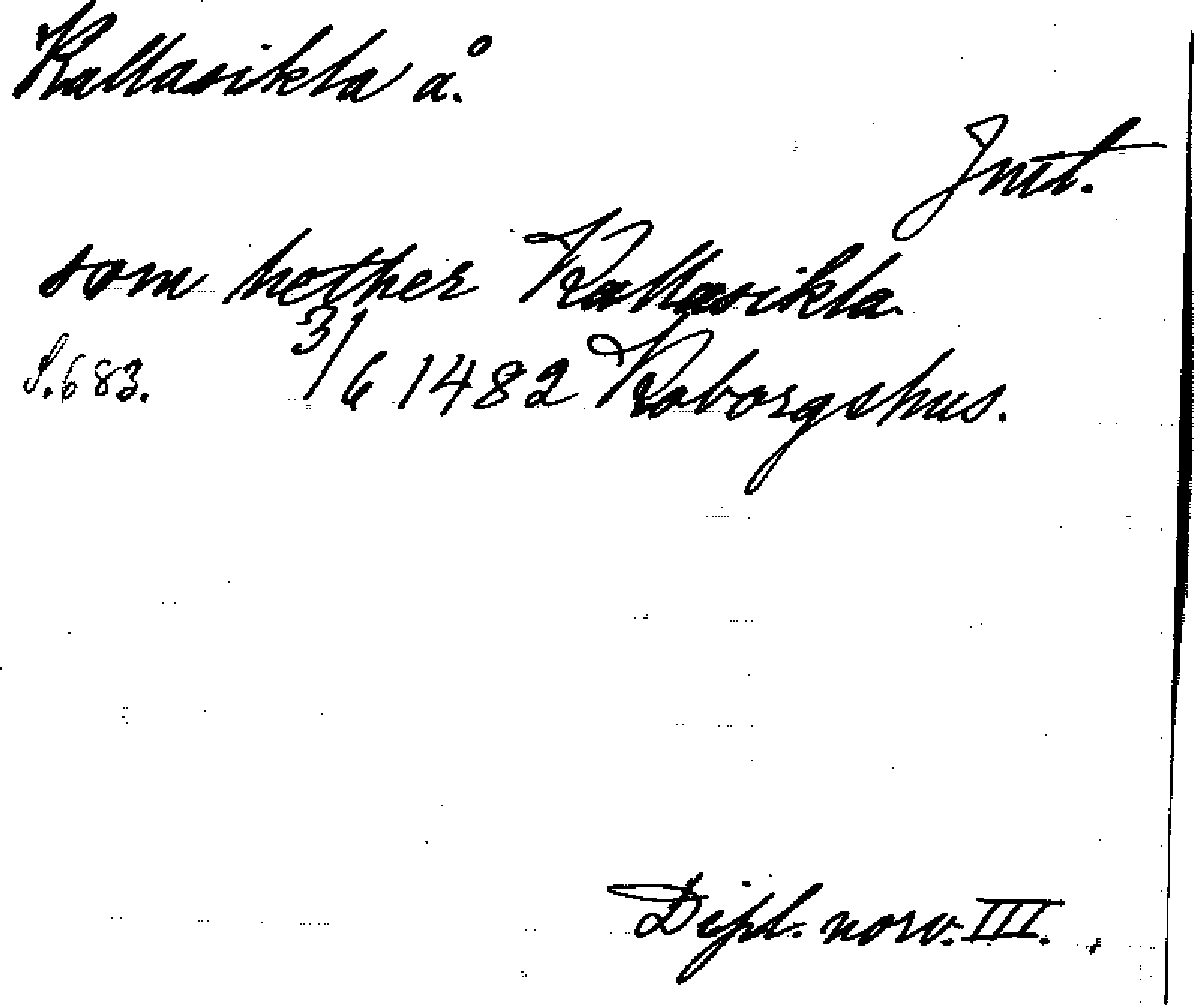 Kallasikla å.
Jmt.
som hether Kallasikla
S. 683. 3/6 1482 Roborgshus.
Dipl. norv. III.